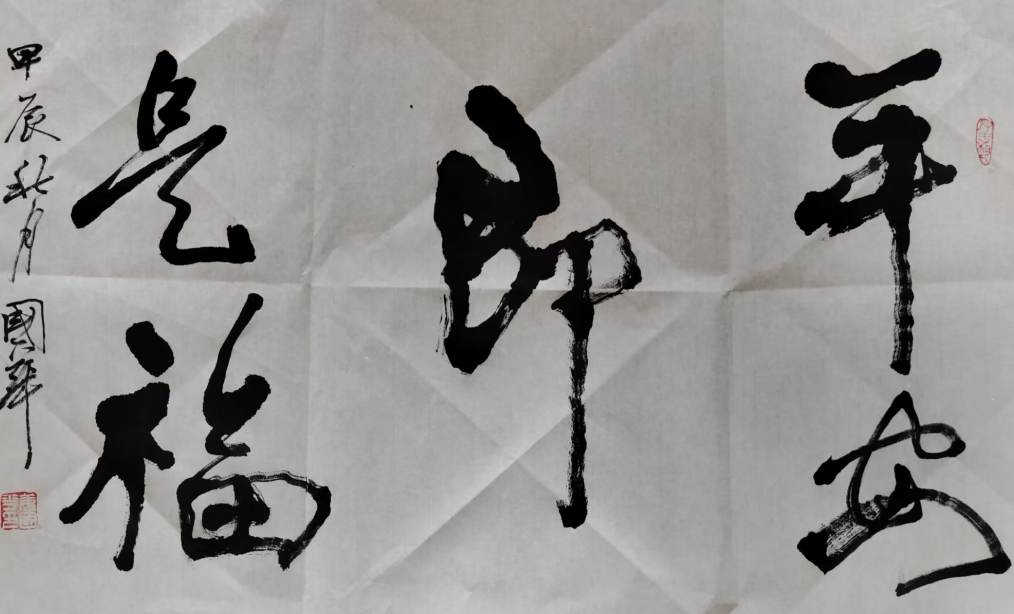 平安
即
是福
甲辰秋月 國華